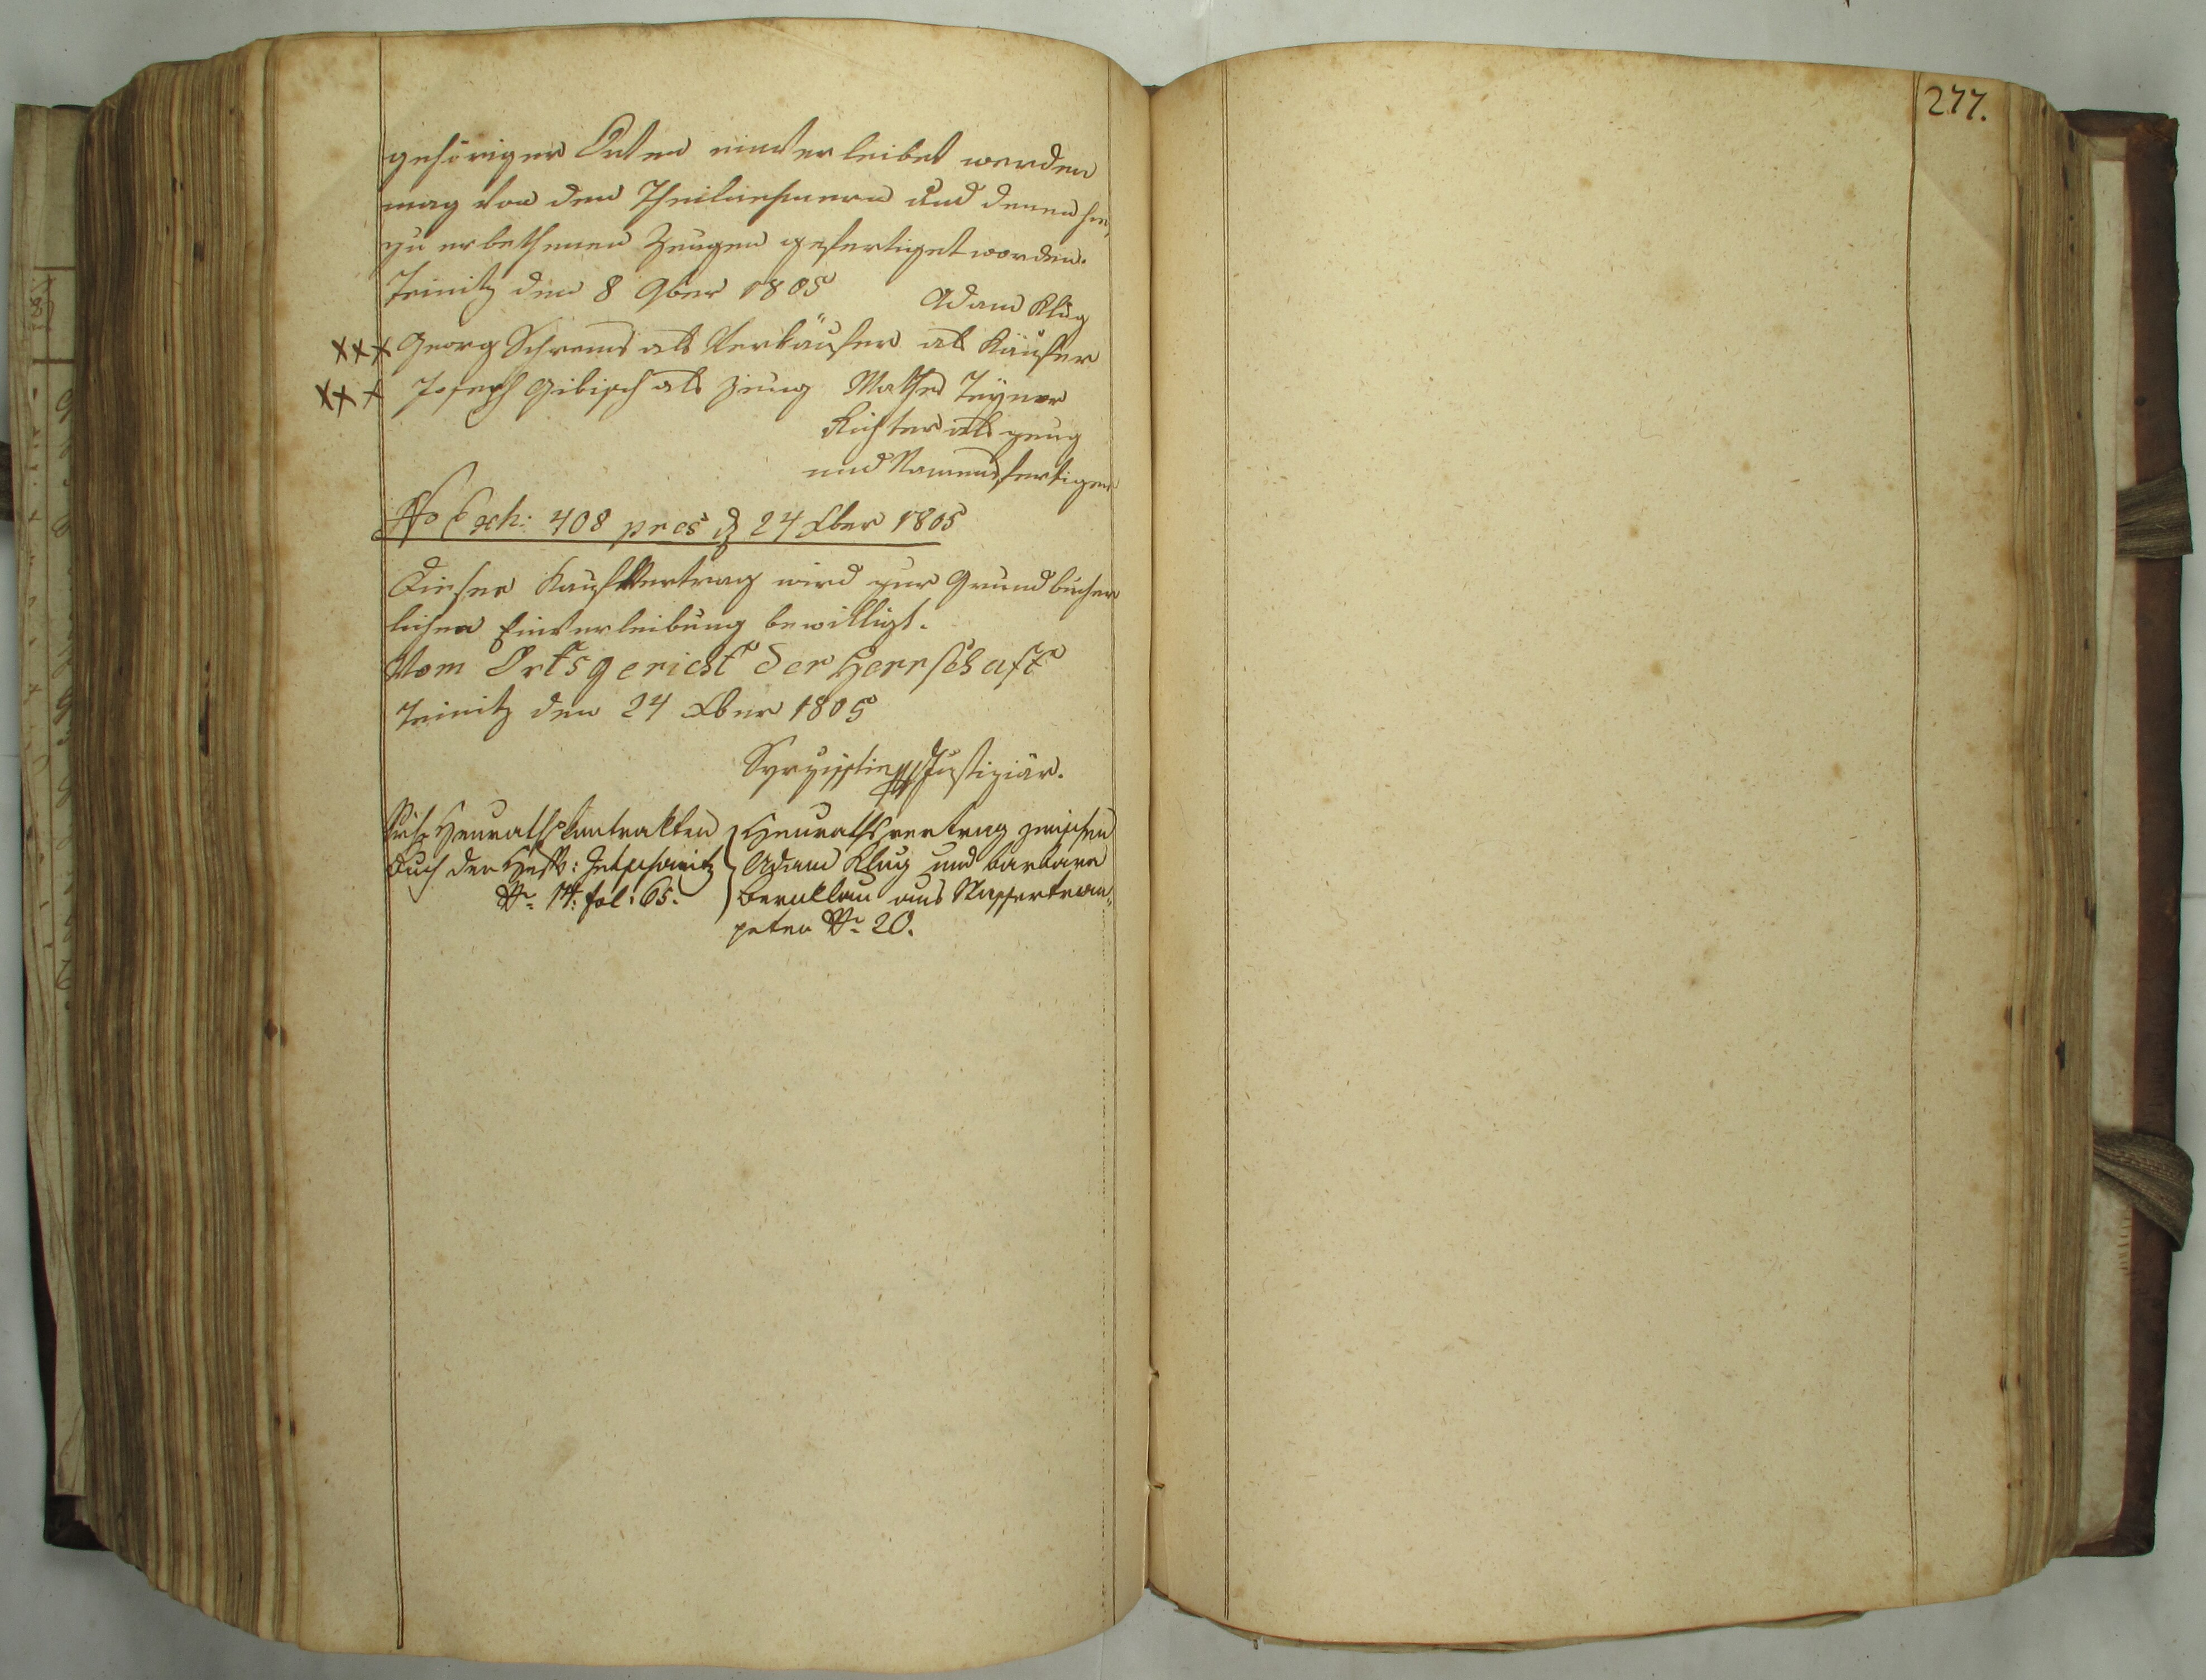 277.
gehöriger Orten einverleibet werden
mag von den Theilnehmern und denen hie,
zu erbethenen Zeugen gefertiget worden.
Teinitz den 8 9ber 1805
Adam Klug
xxx Georg Schrems als Verkäufer als Käufer
xxx Joseph Gibisch als Zeug Mathes
Richter als Zeug
und Namensfertiger
No Exh: 408 pres d 24 Xber 1805
Dieser Kauf Vertrag wird zur Grundbücher
lichen Einverleibung bewilligt.
Vom Ortsgericht der Herrschaft
Teinitz den 24 Xber 1805
Justiziär.
Heuraths Kontrakten
Buch der Hft:
No 14: fol: 65.
Heurathsvertrag zwischen
Adam Klug und Barbara
Beraklau aus Wassertrom„
peten No 20.